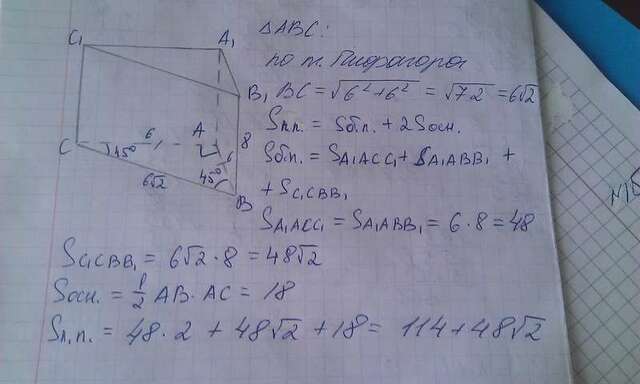 C₁ A₁ B₁ C A B 6 6 8 45° 45° 6√2
△ABC:
по т. Пифагора
BC = √6²+6² = √72 = 6√2
Sп.п. = Sб.п. + 2Sосн.
Sб.п. = SA₁ACC₁ + SA₁ABB₁ +
+ SC₁CBB₁
SA₁ACC₁ = SA₁ABB₁ = 6·8 = 48
SC₁CBB₁ = 6√2·8 = 48√2
Sосн. = 1/2 AB·AC = 18
Sп.п. = 48·2 + 48√2 + 18 = 114+48√2